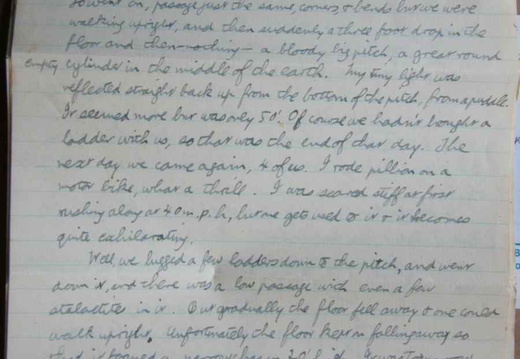 so went on, passage just the same, corners & bends but we were
walking upright, and then suddenly a three foot drop in the
floor and then nothing - a bloody big pitch, a great round
empty cylinder in the middle of the earth. My tiny light was
reflected straight back up from the bottom of the pitch, from a puddle.
It seemed more but was only 50'. Of course we hadn't bought a
ladder with us, so that was the end of that day. The
next day we came again, 4 of us. I rode pillion on a
motor bike, what a thrill. I was scared stiff at first
rushing along at 40 m.p.h, but one gets used to it & it becomes
quite exhilarating.
Well, we lugged a few ladders down to the pitch, and went
down it, and there was a low passage with even a few
stalactites in it. But gradually the floor fell away & one could
walk upright. Unfortunately the floor kept on falling away so
that it formed a narrow